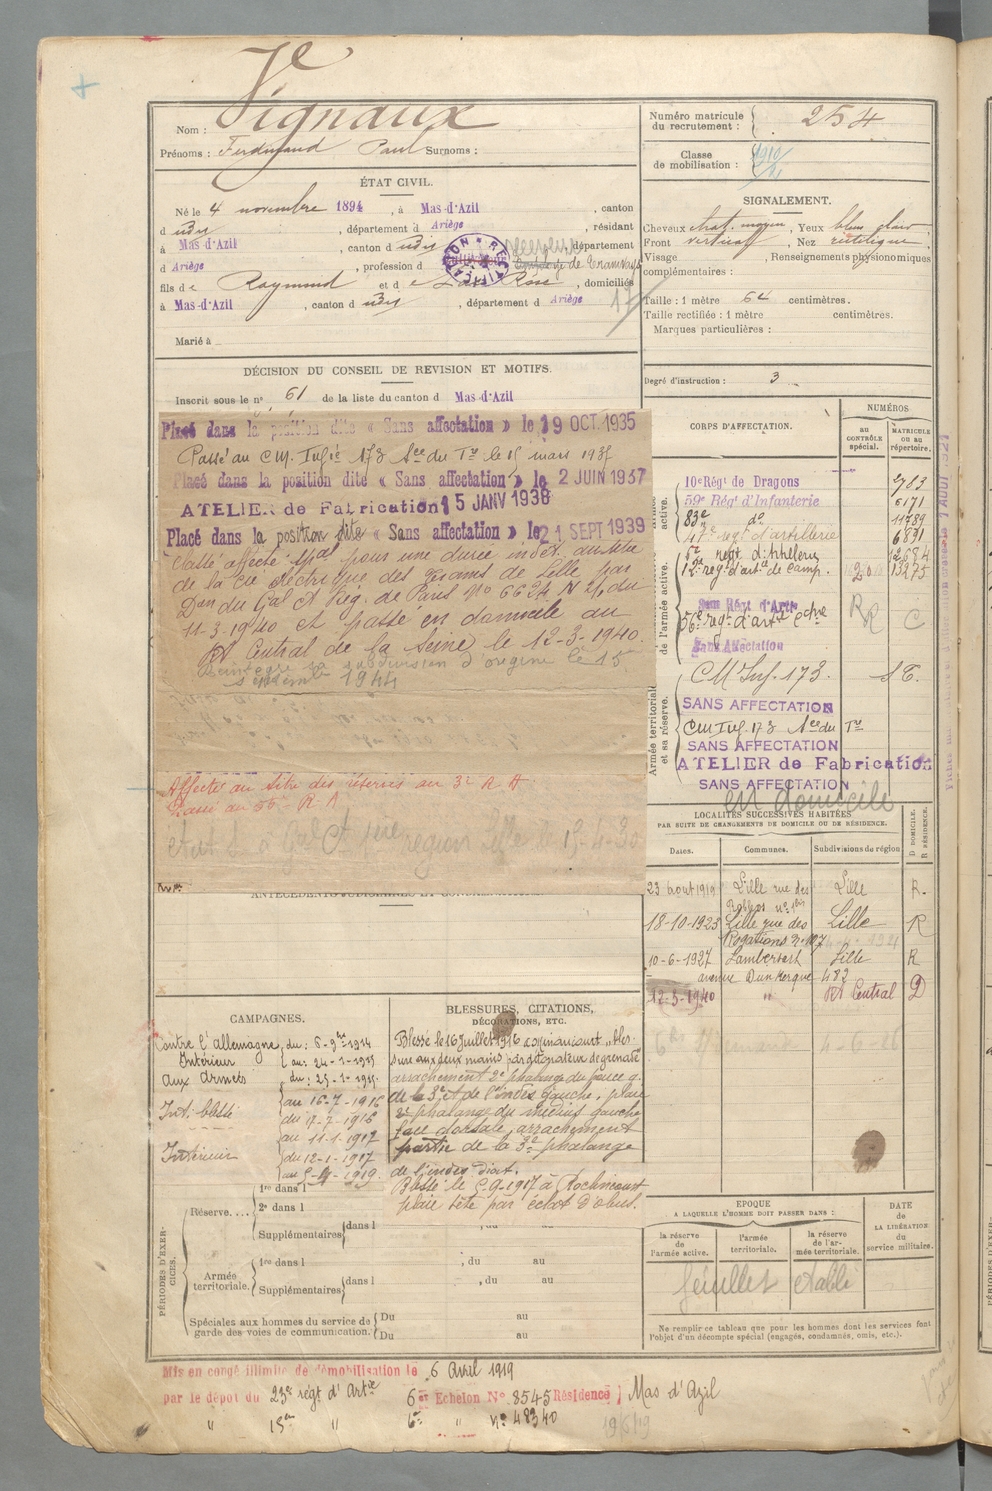 Vignaux
Nom :
Prénoms : Ferdinand Paul Surnoms :
Numéro matricule
du recrutement : 254
Classe
de mobilisation : 1910
ÉTAT CIVIL.
Né le 4 novembre 1894, à Mas-d'Azil, canton
d udit, département d Ariège, résidant
à Mas-d'Azil, canton d udit, département
d Ariège, profession d de Tramways
fils de Raymond et de Rose, domiciliés
à Mas-d'Azil, canton d udit, département d Ariège
17
Marié à
SIGNALEMENT.
Cheveux chat. moyen, Yeux bleu clair,
Front vertical, Nez rectiligne,
Visage , Renseignements physionomiques
complémentaires :
Taille : 1 mètre 64 centimètres.
Taille rectifiée : 1 mètre centimètres.
Marques particulières :
Degré d'instruction : 3
DÉCISION DU CONSEIL DE REVISION ET MOTIFS.
Inscrit sous le n° 61 de la liste du canton d Mas-d'Azil
Placé dans la position dite « Sans affectation » le 19 OCT. 1935
Passé au C.M. Infie 173 Sce du Tre le 15 mars 1937
Placé dans la position dite « Sans affectation » le 2 JUIN 1937
ATELIER de Fabrication 15 JANV 1938
Placé dans la position dite « Sans affectation » le 21 SEPT 1939
Classé affecté spal pour une durée indét. au titre
de la Cie électrique des Trams de Lille par
Don du Gal Ct Rég. de Paris No 6624 du
11-3-1940 et passé en domicile au
Ct Central de la Seine le 12-3-1940.
Réintègre sa subdivision d'origine le 15
septembre 1944
Affecté au titre des réserves au 3e R A
Passé au 55e R A
à Gal Ct 1ère région Lille le 15-4-30
CORPS D'AFFECTATION.
NUMÉROS
au
CONTRÔLE
spécial.
MATRICULE
ou au
répertoire.
active.
de l'armée active.
Armée territoriale
et sa réserve.
10e Régt de Dragons 983
59e Régt d'Infanterie 6171
83e do 11789
régt d'artillerie 6891
régt d'Artillery 12684
12e régt d'artie de camp. 13275
56e régt d'artie RR C
Sans Affectation
CM Inf. 173. SE.
SANS AFFECTATION
CM Inf. 173 Sce du Tre
SANS AFFECTATION
ATELIER de Fabrication
SANS AFFECTATION
en domicile
LOCALITÉS SUCCESSIVES HABITÉES
PAR SUITE DE CHANGEMENTS DE DOMICILE OU DE RÉSIDENCE.
Dates. Communes. Subdivisions de région
D DOMICILE.
R RÉSIDENCE.
23 Aout 1919 Lille rue des Lille R.
18-10-1923 Lille rue des Lille R
Rogations n. 107
10-6-1927 Lambersart Lille R
avenue Dunkerque 482
12-3-1940 " Ct Central D
ANTÉCÉDENTS JUDICIAIRES ET CONDAMNATIONS.
CAMPAGNES.
Contre l'Allemagne, du : 6-9bre 1914
Intérieur au : 24-1-1915
Aux Armées du : 25-1-1915
au 16-7-1916
Int. blessé du 17-7-1916
au 11-1-1917
Intérieur du 12-1-1917
au 5-4-1919
BLESSURES, CITATIONS,
DÉCORATIONS, ETC.
Blessé le 16 Juillet 1916 "bles-
sure aux deux mains par détonateur de grenade"
arrachement 2e phalange du pouce g.
de la 3e et de l'index gauche, plaie
2e phalange du médius gauche
face dorsale, arrachement
partie de la 3e phalange
de l'index droit.
Blessé le 5-9-1917 à Rochincourt
plaie tête par éclat d'obus.
PÉRIODES D'EXERCICES.
Réserve....
1re dans l
2e dans l
Supplémentaires dans l , du au
Armée
territoriale.
1re dans l , du au
Supplémentaires dans l , du au
Spéciales aux hommes du service de
garde des voies de communication.
Du au
Du au
ÉPOQUE
A LAQUELLE L'HOMME DOIT PASSER DANS :
la réserve
de
l'armée active.
l'armée
territoriale.
la réserve
de l'ar-
mée territoriale.
DATE
de
LA LIBÉRATION
du
service militaire.
feuillet établi
Ne remplir ce tableau que pour les hommes dont les services font
l'objet d'un décompte spécial (engagés, condamnés, omis, etc.).
Mis en congé illimité de démobilisation le 6 Avril 1919
par le dépot du 23e régt d'Artie 6e Echelon No 8545 Résidence Mas d'Azil
" 15e " 6e " No 48340
19/6/19